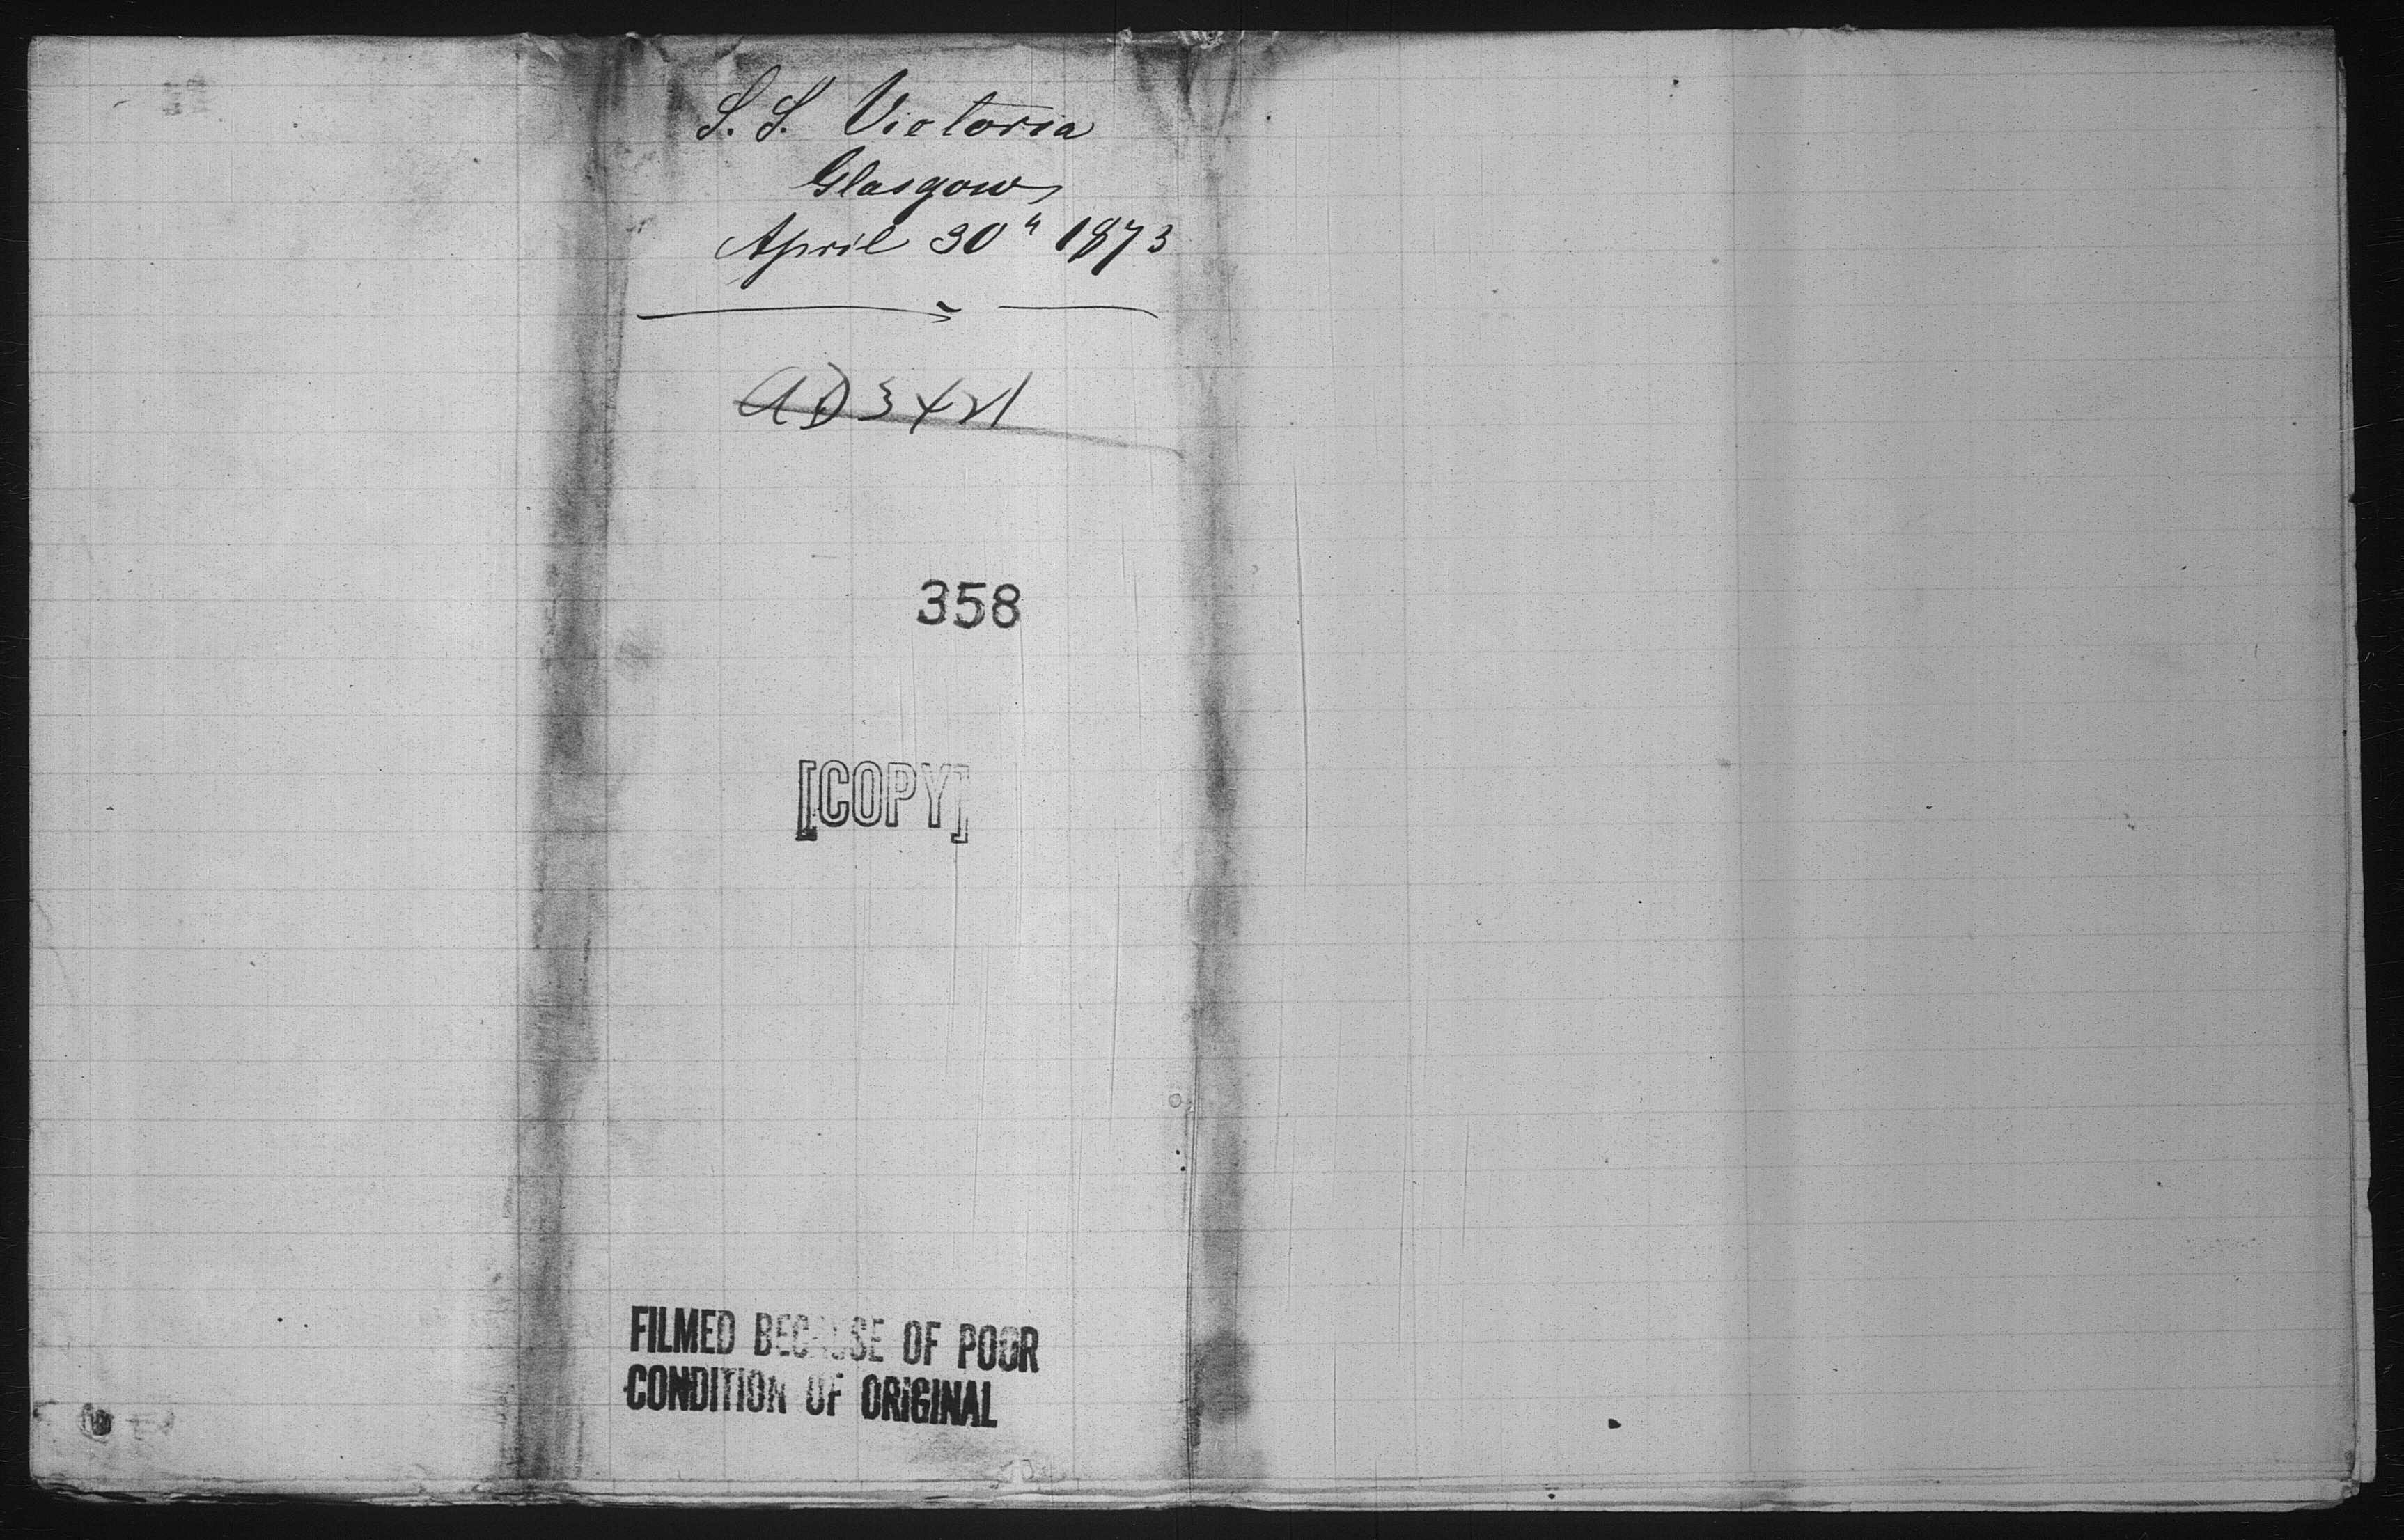 S. S. Victoria
Glasgow
April 30" 1873
358
[COPY]
FILMED BECAUSE OF POOR
CONDITION OF ORIGINAL